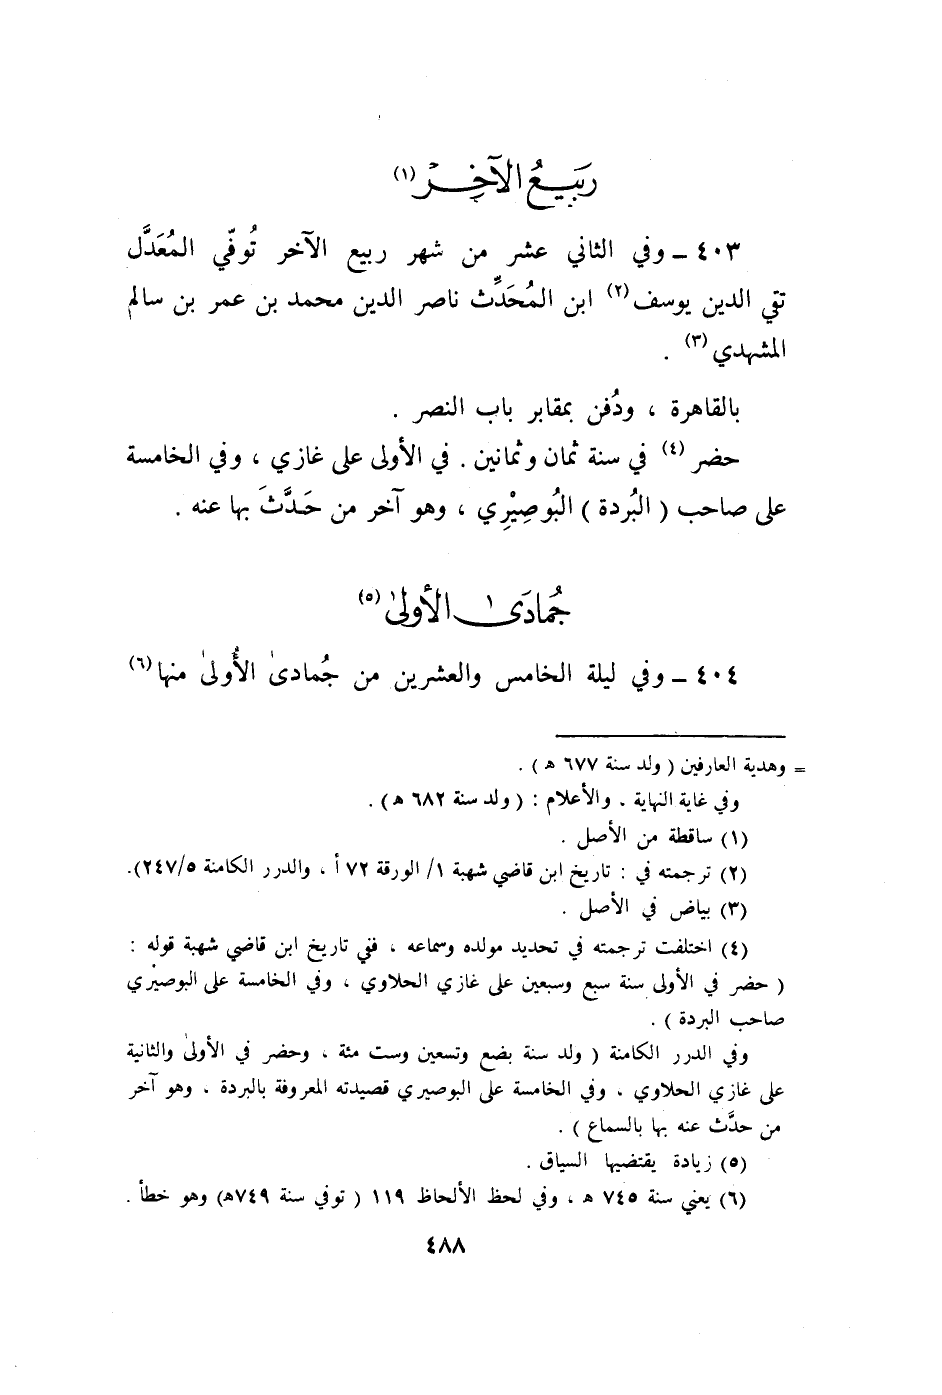 ربيع الآخر (١)
٤٠٣ ـ وفي الثاني عشر من شهر ربيع الآخر تُوفّي المُعَدَّل
تقي الدين يوسف (٢) ابن المُحَدِّث ناصر الدين محمد بن عمر بن سالم
المشهدي (٣) .
بالقاهرة ، ودُفن بمقابر باب النصر .
حضر (٤) في سنة ثمان وثمانين . في الأولى على غازي ، وفي الخامسة
على صاحب ( البُردة ) البُوصِيْرِي ، وهو آخر من حَدَّثَ بها عنه .
جُمادَىٰ الأولىٰ (٥)
٤٠٤ ـ وفي ليلة الخامس والعشرين من جُمادىٰ الأُولىٰ منها (٦)
= وهدية العارفين ( ولد سنة ٦٧٧ هـ ) .
وفي غاية النهاية . والأعلام : ( ولد سنة ٦٨٢ هـ ) .
(١) ساقطة من الأصل .
(٢) ترجمته في : تاريخ ابن قاضي شهبة ١/ الورقة ٧٢ أ ، والدرر الكامنة ٢٤٧/٥).
(٣) بياض في الأصل .
(٤) اختلفت ترجمته في تحديد مولده وسماعه ، ففي تاريخ ابن قاضي شهبة قوله :
( حضر في الأولى سنة سبع وسبعين على غازي الحلاوي ، وفي الخامسة على البوصيْري
صاحب البردة ) .
وفي الدرر الكامنة ( ولد سنة بضع وتسعين وست مئة ، وحضر في الأولىٰ والثانية
على غازي الحلاوي . وفي الخامسة على البوصيري قصيدته المعروفة بالبردة . وهو آخر
من حدَّث عنه بها بالسماع ) .
(٥) زيادة يقتضيها السياق .
(٦) يعني سنة ٧٤٥ هـ ، وفي لحظ الألحاظ ١١٩ ( توفي سنة ٧٤٩هـ) وهو خطأ .
٤٨٨